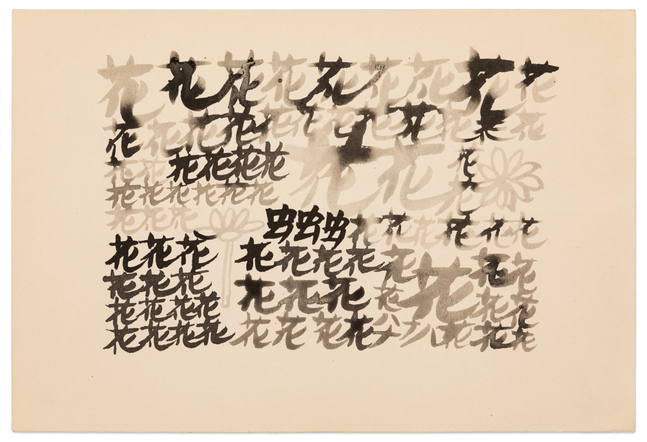 花花花花花花花花花
花花花花花花花花花花
花花花花花花花花花花
花花花花花花
花花花虫虫虫花花花花花花
花花花花花花花花花花花
花花花花花花花花花
花花花花
花花花花花花花花花花花